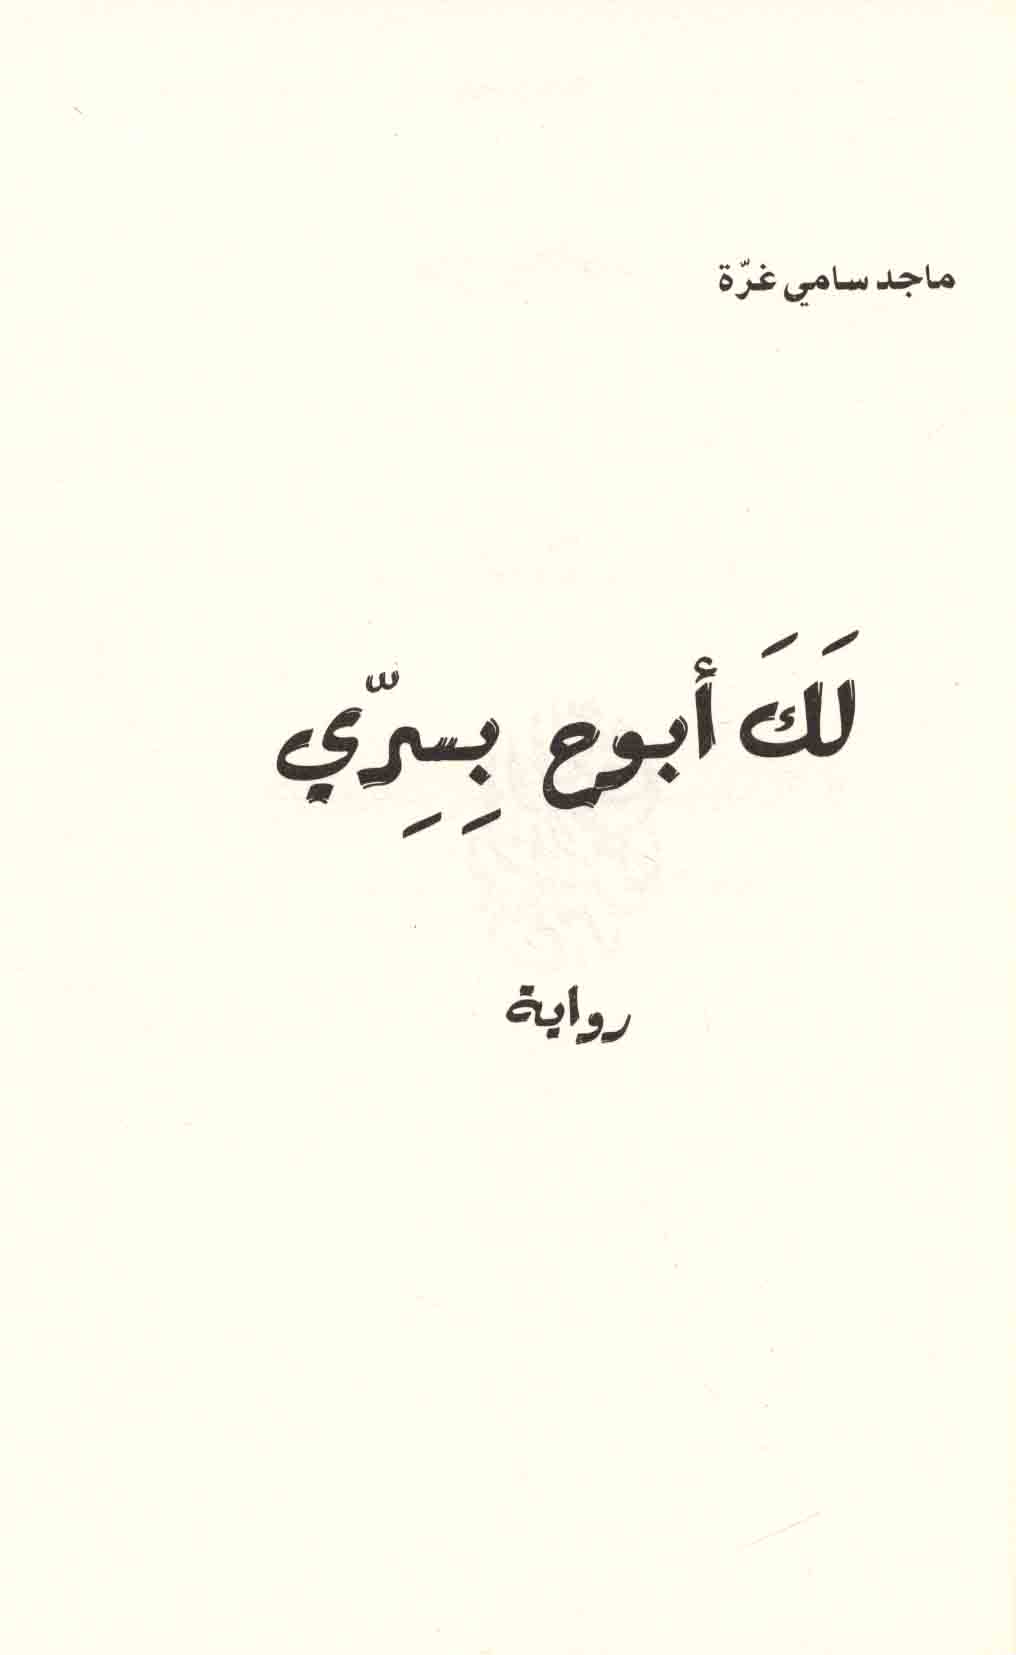 ماجد سامي غرّة
لَكَ أبوح بِسِرِّي
رواية